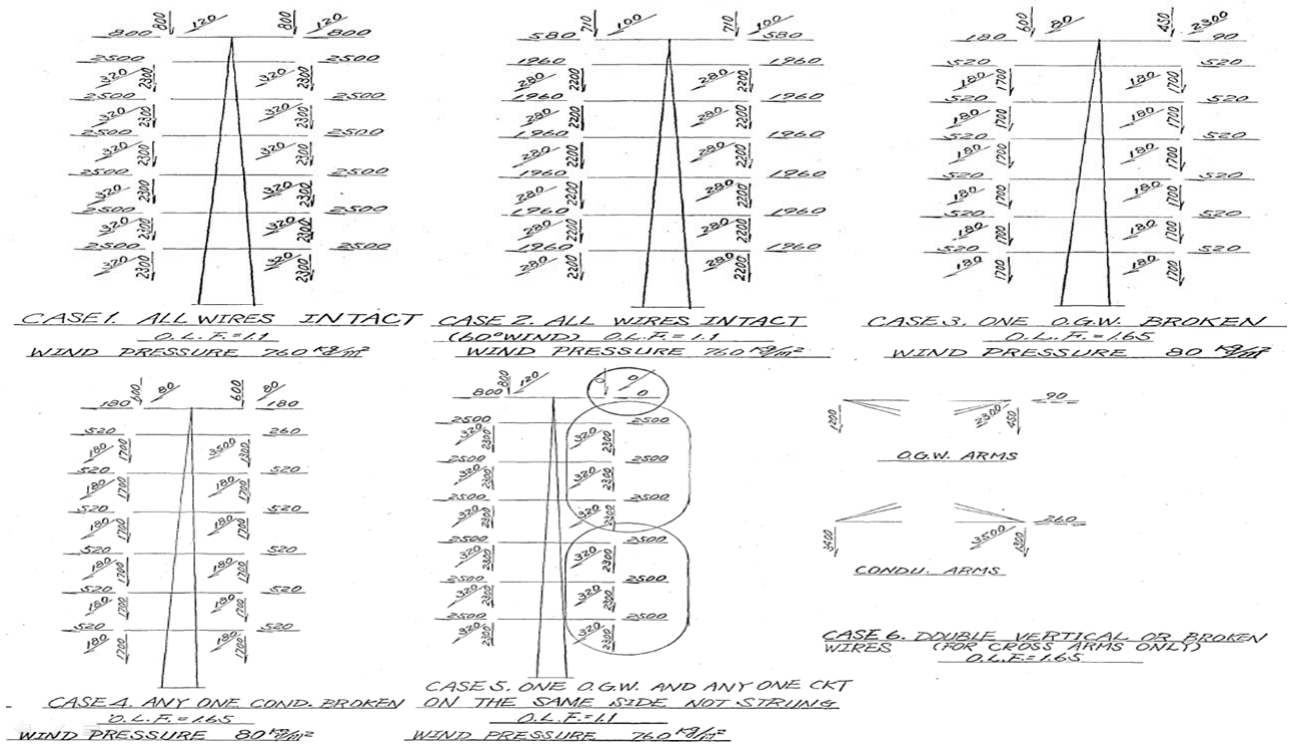 800 120 800 120
800 800
2500 2500
320 2300 320 2300
2500 2500
320 2300 320 2300
2500 2500
320 2300 320 2300
2500 2500
320 2300 320 2300
2500 2500
320 2300 320 2300
2500 2500
320 2300 320 2300
CASE 1. ALL WIRES INTACT
O.L.F.=1.1
WIND PRESSURE 760 Kg/m²
710 100 710 100
580 580
1960 1960
280 2200 280 2200
1960 1960
280 2200 280 2200
1960 1960
280 2200 280 2200
1960 1960
280 2200 280 2200
1960 1960
280 2200 280 2200
1960 1960
280 2200 280 2200
CASE 2. ALL WIRES INTACT
(60° WIND) O.L.F.=1.1
WIND PRESSURE 760 Kg/m²
600 80 450 2300
180 90
520 520
180 1700 180 1700
520 520
180 1700 180 1700
520 520
180 1700 180 1700
520 520
180 1700 180 1700
520 520
180 1700 180 1700
520 520
180 1700 180 1700
CASE 3. ONE O.G.W. BROKEN
O.L.F.=1.65
WIND PRESSURE 80 Kg/m²
600 80 600 80
180 180
520 260
180 1700 3500 1300
520 520
180 1700 180 1700
520 520
180 1700 180 1700
520 520
180 1700 180 1700
520 520
180 1700 180 1700
520 520
180 1700 180 1700
CASE 4. ANY ONE COND. BROKEN
O.L.F.=1.65
WIND PRESSURE 80 Kg/m²
800 120 0 0
800 0
2500 2500
320 2300 320 2300
2500 2500
320 2300 320 2300
2500 2500
320 2300 320 2300
2500 2500
320 2300 320 2300
2500 2500
320 2300 320 2300
2500 2500
320 2300 320 2300
CASE 5. ONE O.G.W. AND ANY ONE CKT
ON THE SAME SIDE NOT STRUNG
O.L.F.=1.1
WIND PRESSURE 760 Kg/m²
90
1200 2300 450
O.G.W. ARMS
260
3500 1300
CONDU. ARMS
CASE 6. DOUBLE VERTICAL OR BROKEN
WIRES (FOR CROSS ARMS ONLY)
O.L.F.=1.65